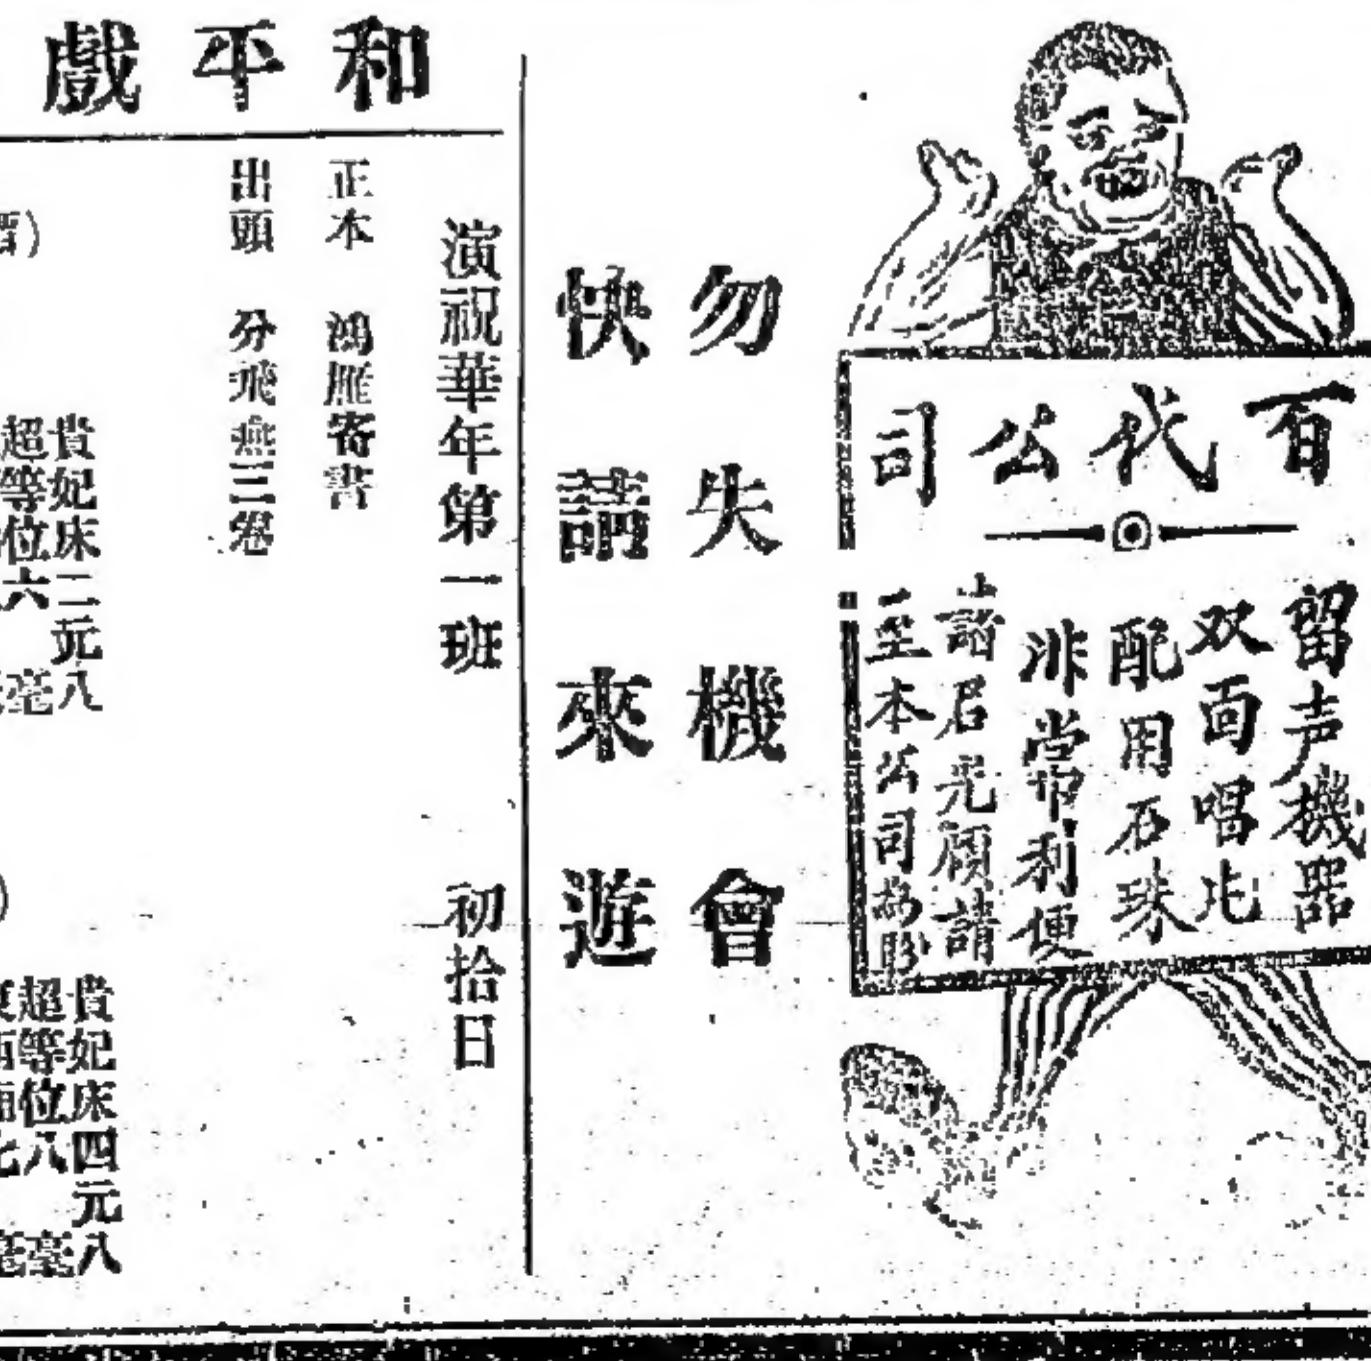 百代公司
留声機器
双面唱片
配用石珠
非常利便
諸君光顧請
至本公司為盼
勿失機會
快請來遊
和平戲
演祝華年第一班 初拾日
正本 鴻雁寄書
出頭 分飛燕三卷
貴妃床二元八
超等位六毫
貴妃床四元八
超等位八毫